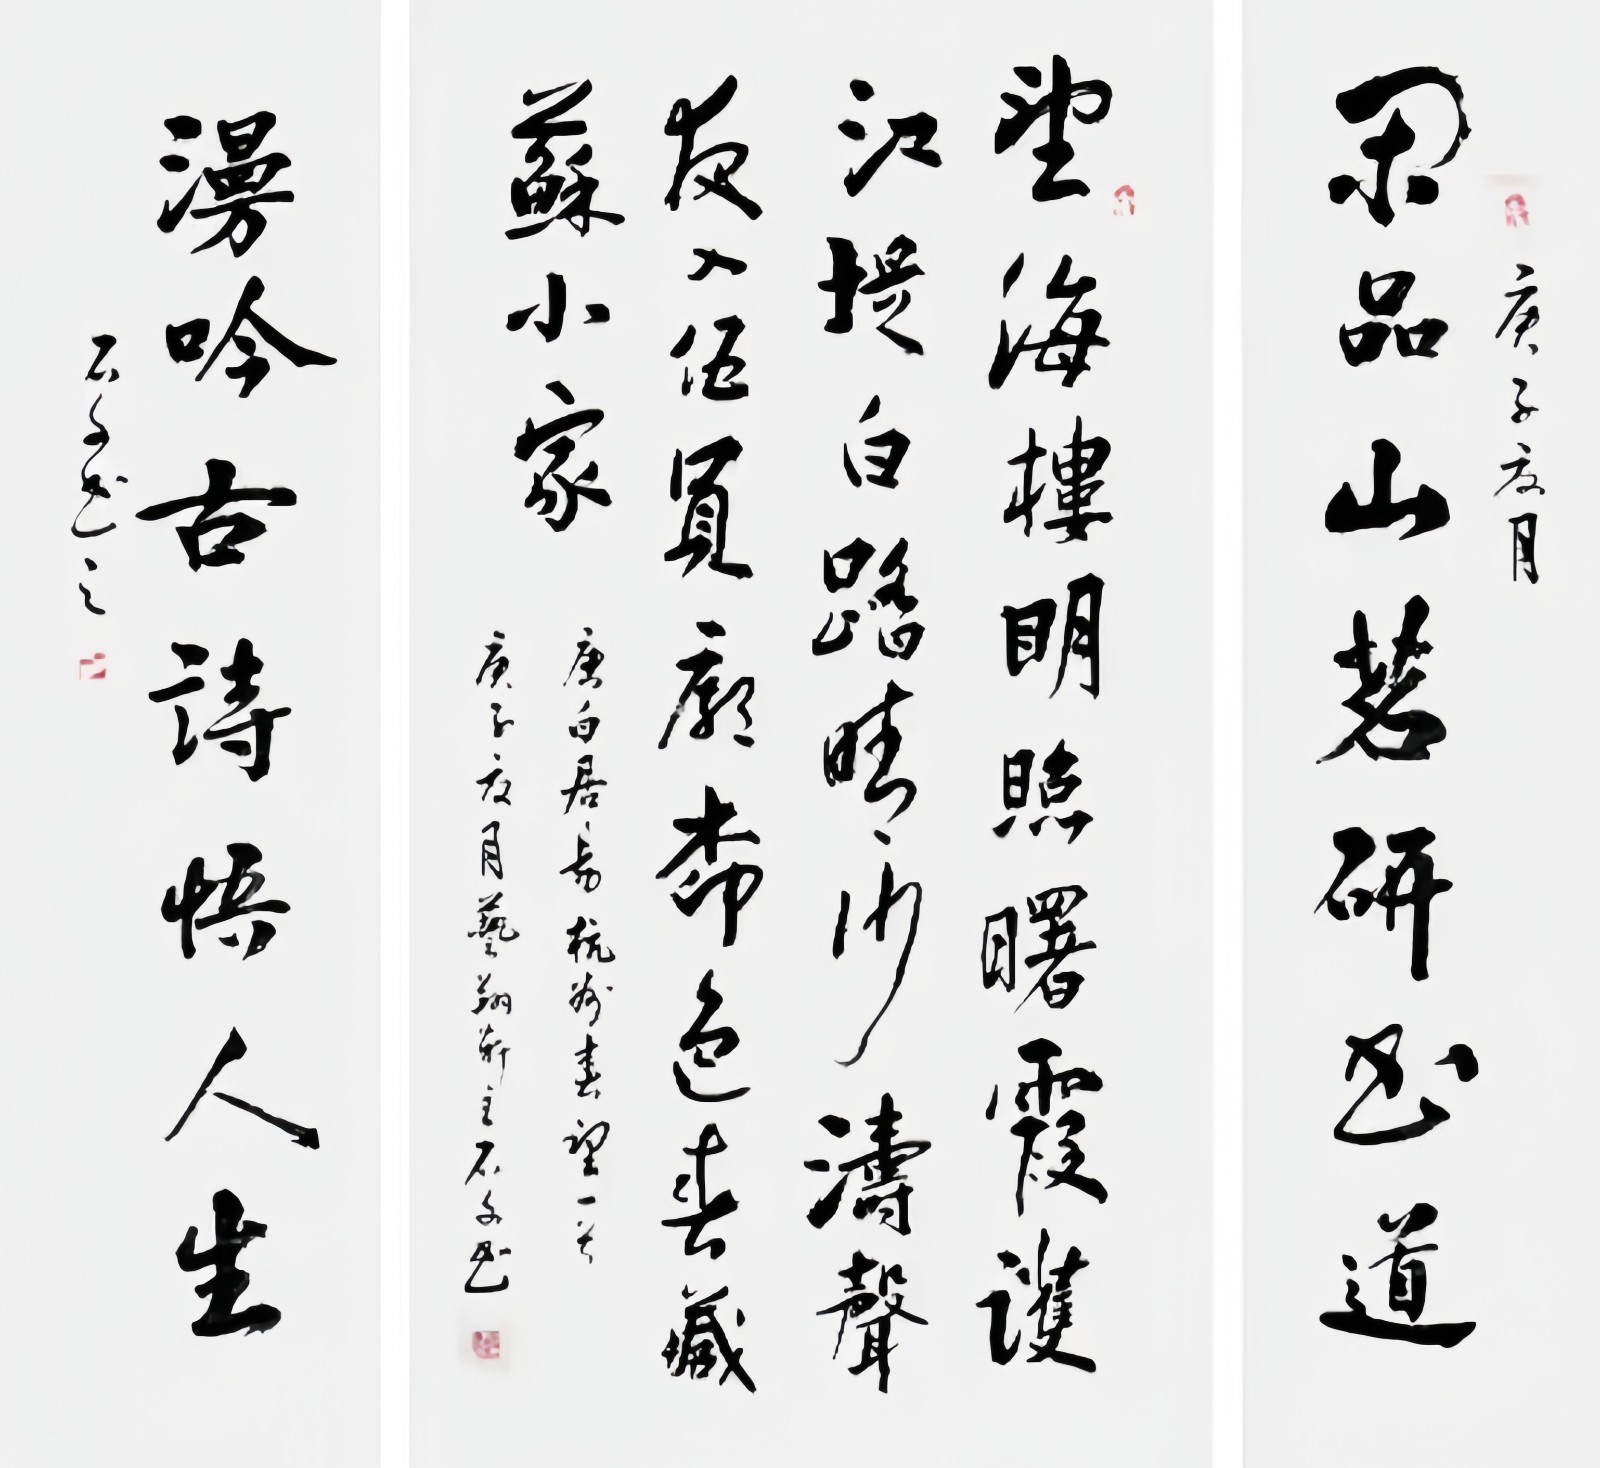 庚子夏月
闲品山茗研书道
望海樓明照曙霞護
江堤白踏晴沙濤聲
夜入伍員廟柳色春藏
蘇小家
唐白居易杭州春望一首
庚子夏月藝翔軒主石文书
漫吟古詩悟人生
石文书之